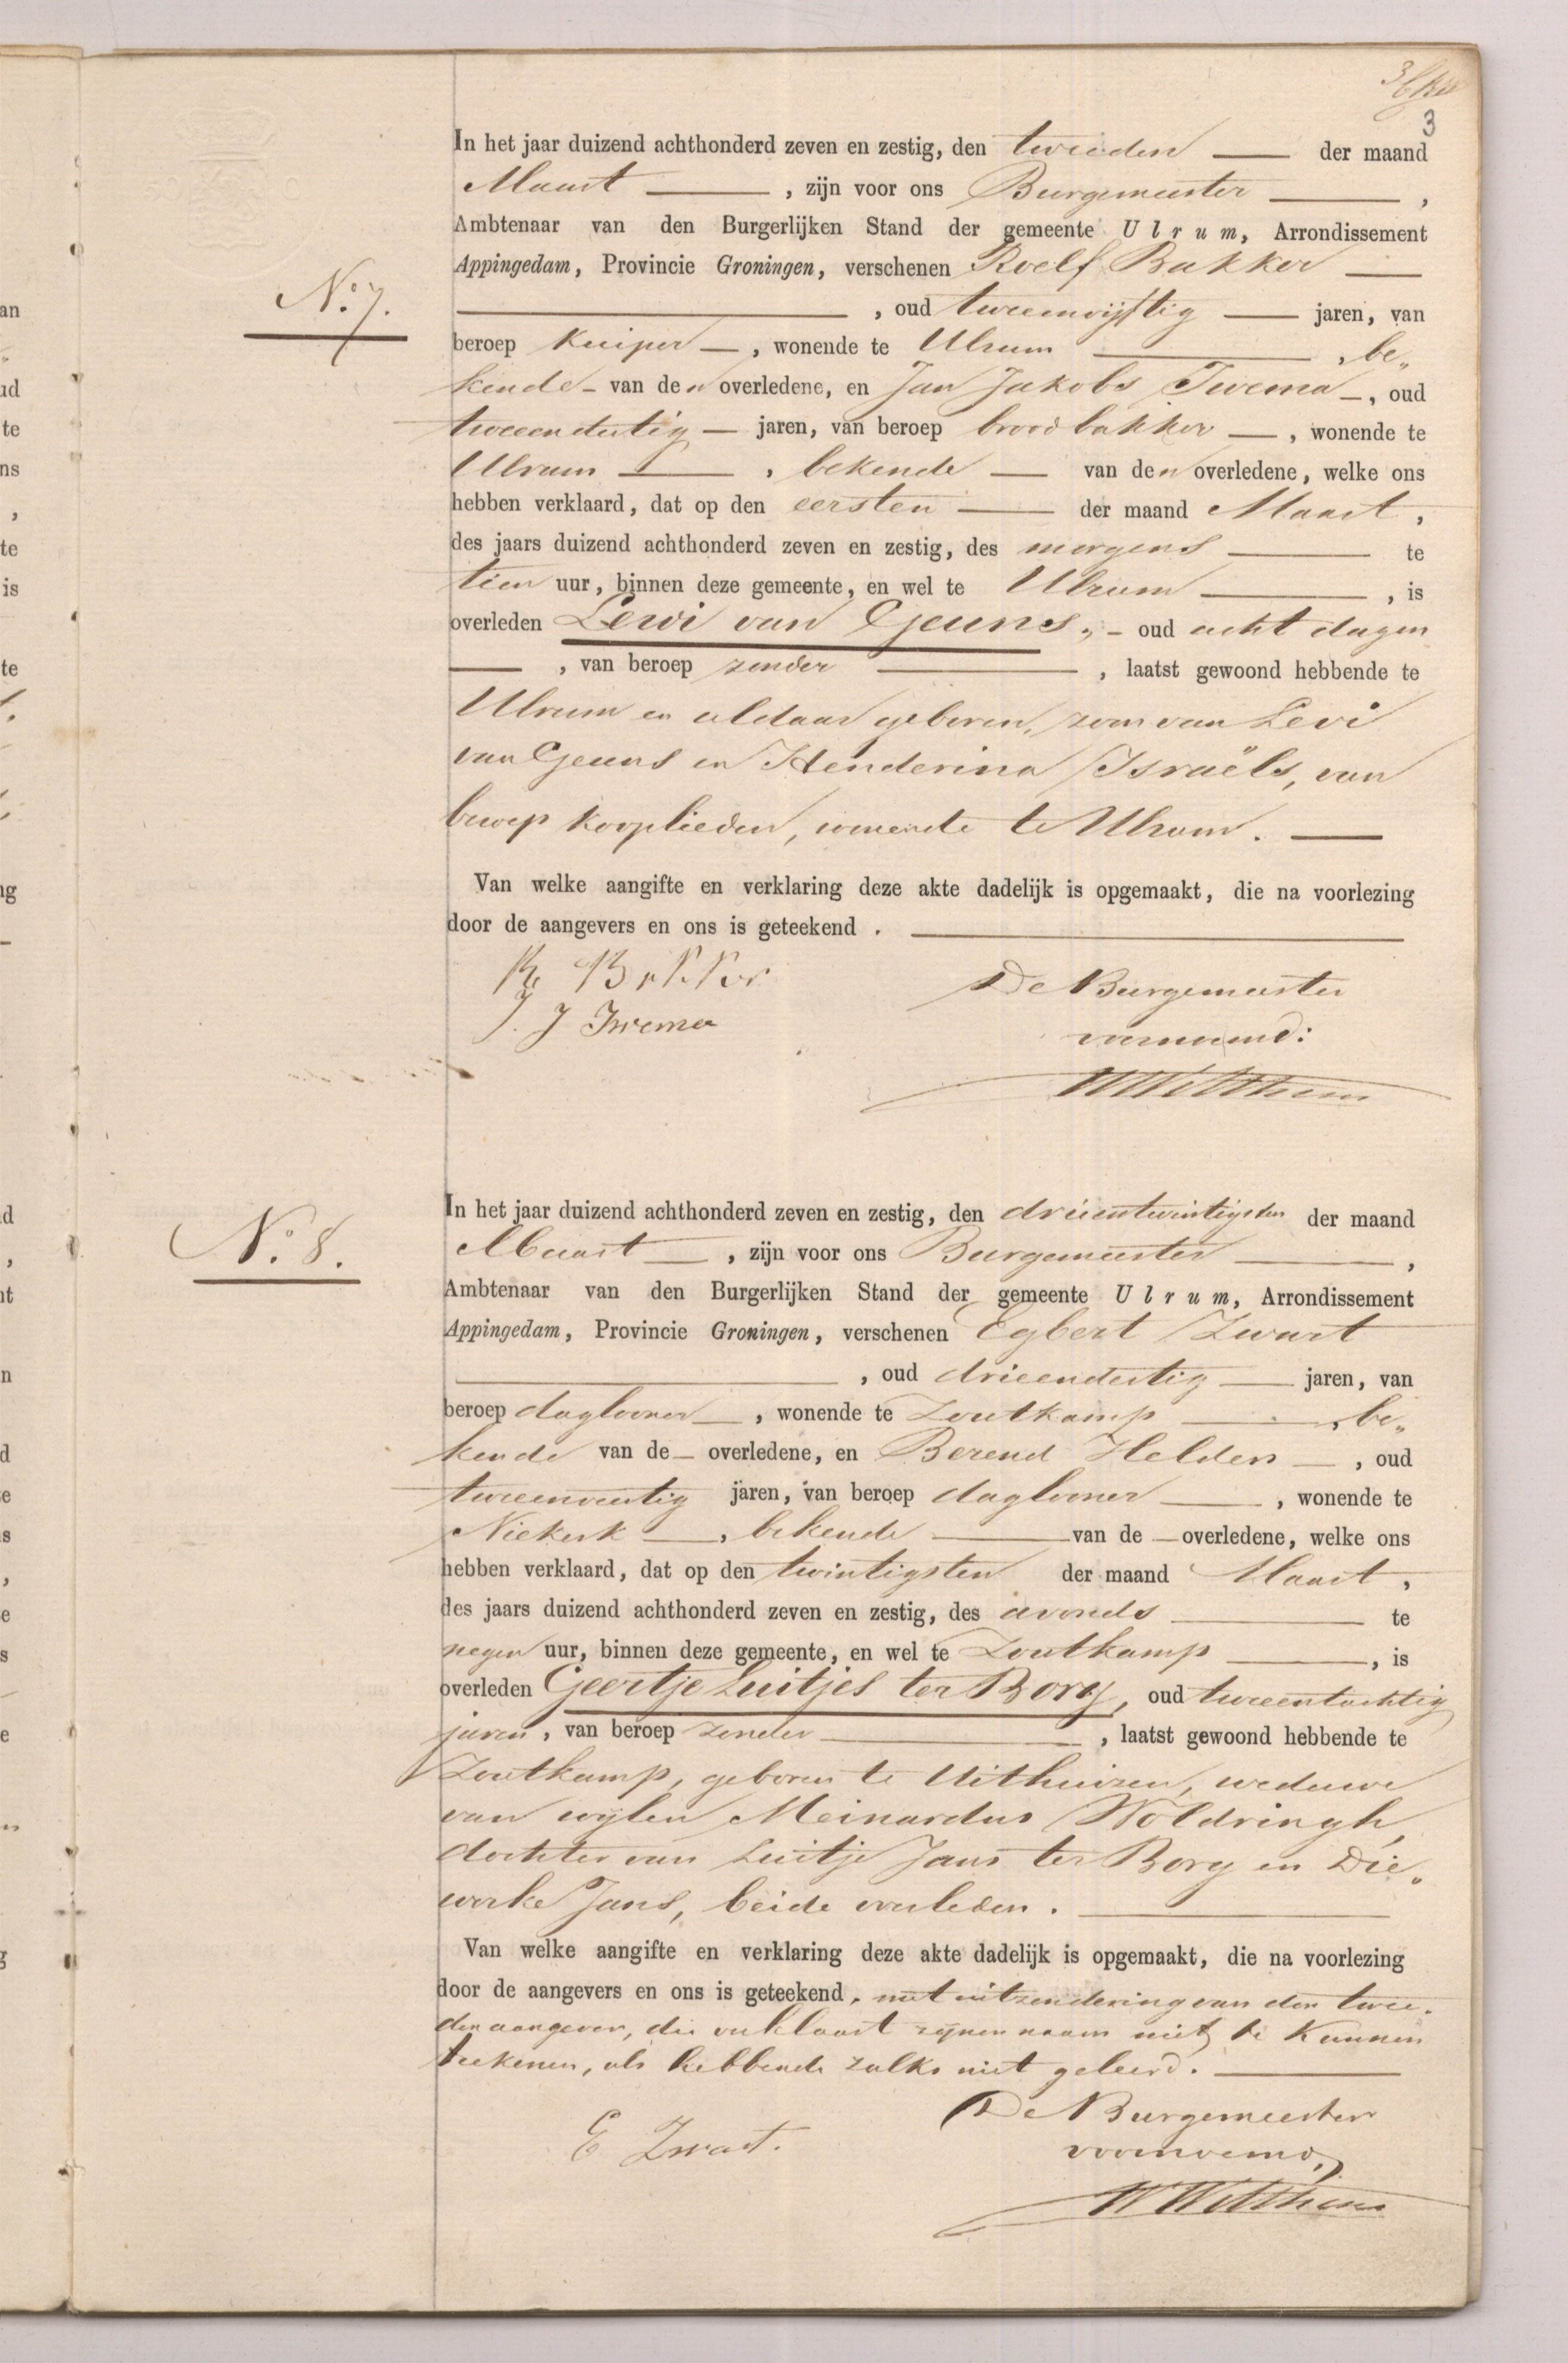 3
In het jaar duizend achthonderd zeven en zestig, den tweeden der maand
Maart, zijn voor ons Burgemeester,
Ambtenaar van den Burgerlijken Stand der gemeente Ulrum, Arrondissement
Appingedam, Provincie Groningen, verschenen Roelf Bakker
No. 7.
, oud tweeenvijftig jaren, van
beroep kuiper, wonende te Ulrum, be„
kende van den overledene, en Jan Jakobs Iwema, oud
tweeendertig jaren, van beroep broodbakker, wonende te
Ulrum, bekende van den overledene, welke ons
hebben verklaard, dat op den eersten der maand Maart,
des jaars duizend achthonderd zeven en zestig, des morgens te
tien uur, binnen deze gemeente, en wel te Ulrum, is
overleden Levi van Geuns, oud acht dagen
, van beroep zonder, laatst gewoond hebbende te
Ulrum en aldaar geboren, zoon van Levi
van Geuns en Henderina Israëls, van
beroep kooplieden, wonende te Ulrum.
Van welke aangifte en verklaring deze akte dadelijk is opgemaakt, die na voorlezing
door de aangevers en ons is geteekend.
R Bakker
J. J Iwema
De Burgemeester
voornoemd:
No. 8.
In het jaar duizend achthonderd zeven en zestig, den drieentwintigsten der maand
Maart, zijn voor ons Burgemeester,
Ambtenaar van den Burgerlijken Stand der gemeente Ulrum, Arrondissement
Appingedam, Provincie Groningen, verschenen Egbert Zwart
, oud drieendertig jaren, van
beroep daglooner, wonende te Zoutkamp, be„
kende van de overledene, en Berend Helder, oud
tweeenveertig jaren, van beroep daglooner, wonende te
Niekerk, bekende van de overledene, welke ons
hebben verklaard, dat op den twintigsten der maand Maart,
des jaars duizend achthonderd zeven en zestig, des avonds te
negen uur, binnen deze gemeente, en wel te Zoutkamp, is
overleden Geertje Luitjes ter Borg, oud tweeentachtig
jaren, van beroep zonder, laatst gewoond hebbende te
Zoutkamp, geboren te Uithuizen, weduwe
van wijlen Meinardus Woldringh,
dochter van Luitje Jans ter Borg en Die„
werke Jans, beide overleden.
Van welke aangifte en verklaring deze akte dadelijk is opgemaakt, die na voorlezing
door de aangevers en ons is geteekend, met uitzondering van den twee„
den aangever, die verklaart zijnen naam niet te kunnen
teekenen, als hebbende zulks niet geleerd.
De Burgemeester
voornoemd,
E Zwart.